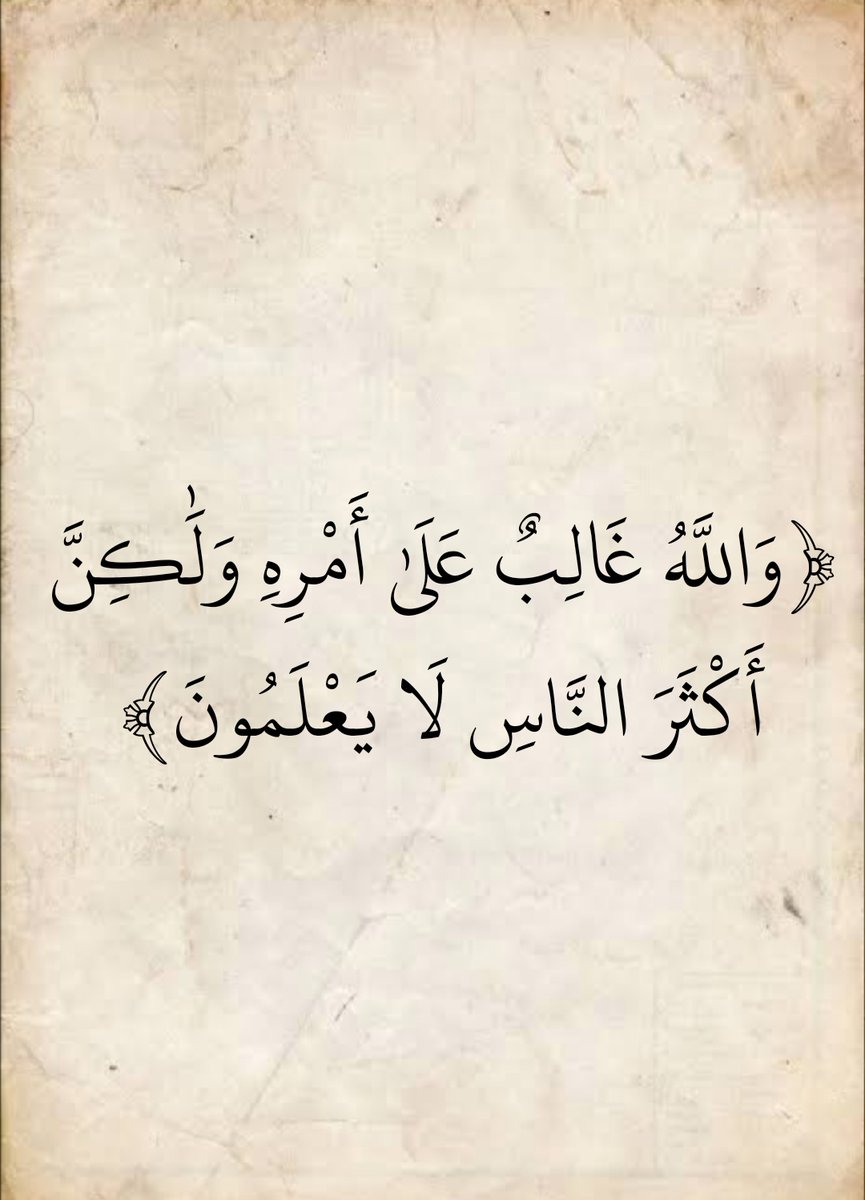 ﴿وَاللَّهُ غَالِبٌ عَلَىٰ أَمْرِهِ وَلَٰكِنَّ
أَكْثَرَ النَّاسِ لَا يَعْلَمُونَ﴾